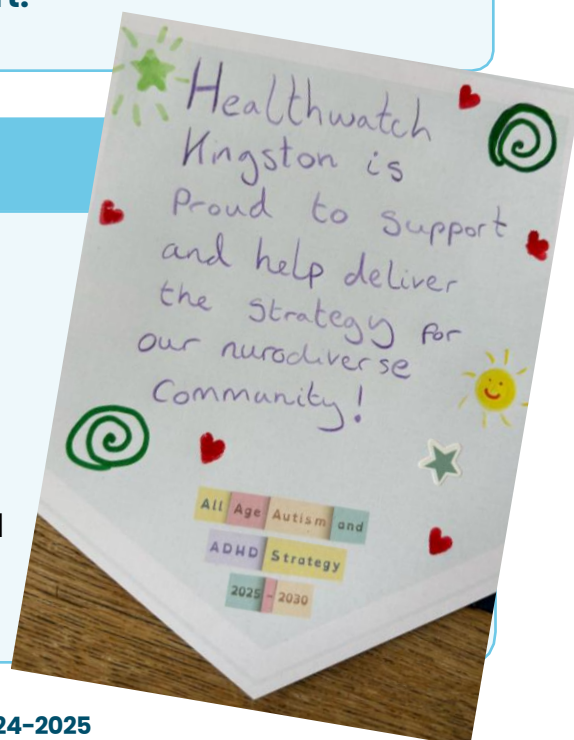 Healthwatch
Kingston is
Proud to support
and help deliver
the strategy for
our nurodiverse
Community!
All Age Autism and
ADHD Strategy
2025 - 2030
24-2025